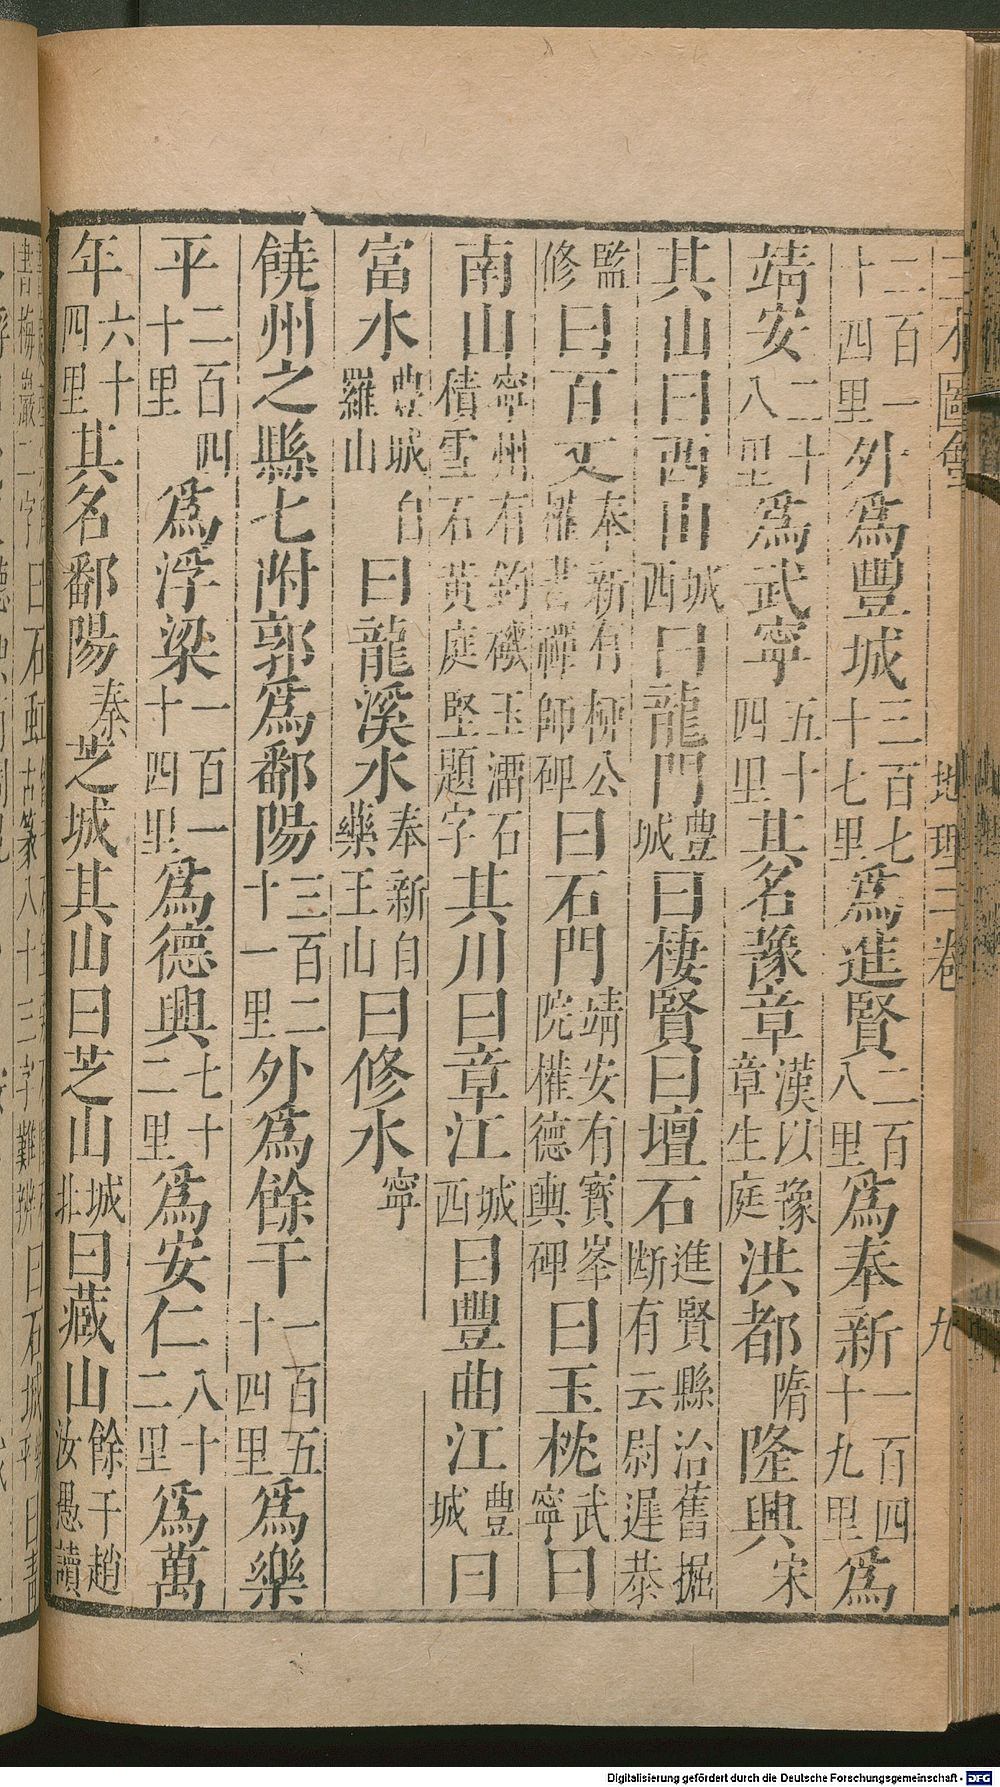 地理二卷 九
二百一十四里外爲豐城三百七十七里爲進賢二百八里爲奉新一百四十九里爲
靖安二十八里爲武寧五十四里其名豫章漢以豫章生庭洪都隋隆興宋
其山曰西山城西曰龍門豐城曰棲賢曰壇石進賢縣治舊掘斷有云尉遲恭
監修曰百丈奉新有柳公權書禪師碑曰石門靖安有寶峯院權德輿碑曰玉枕武寧曰
南山寧州有釣磯玉灊石積雪石黃庭堅題字其川曰章江城西曰豐曲江豐城曰
富水豐城羅山自曰龍溪水奉新自藥王山曰修水寧
饒州之縣七附郭爲鄱陽三百二十一里外爲餘干一百五十四里爲樂
平二百四十里爲浮梁一百一十四里爲德興七十二里爲安仁八十二里爲萬
年六十四里其名鄱陽秦芝城其山曰芝山城北曰藏山餘干趙汝愚讀
Digitalisierung gefördert durch die Deutsche Forschungsgemeinschaft - DFG